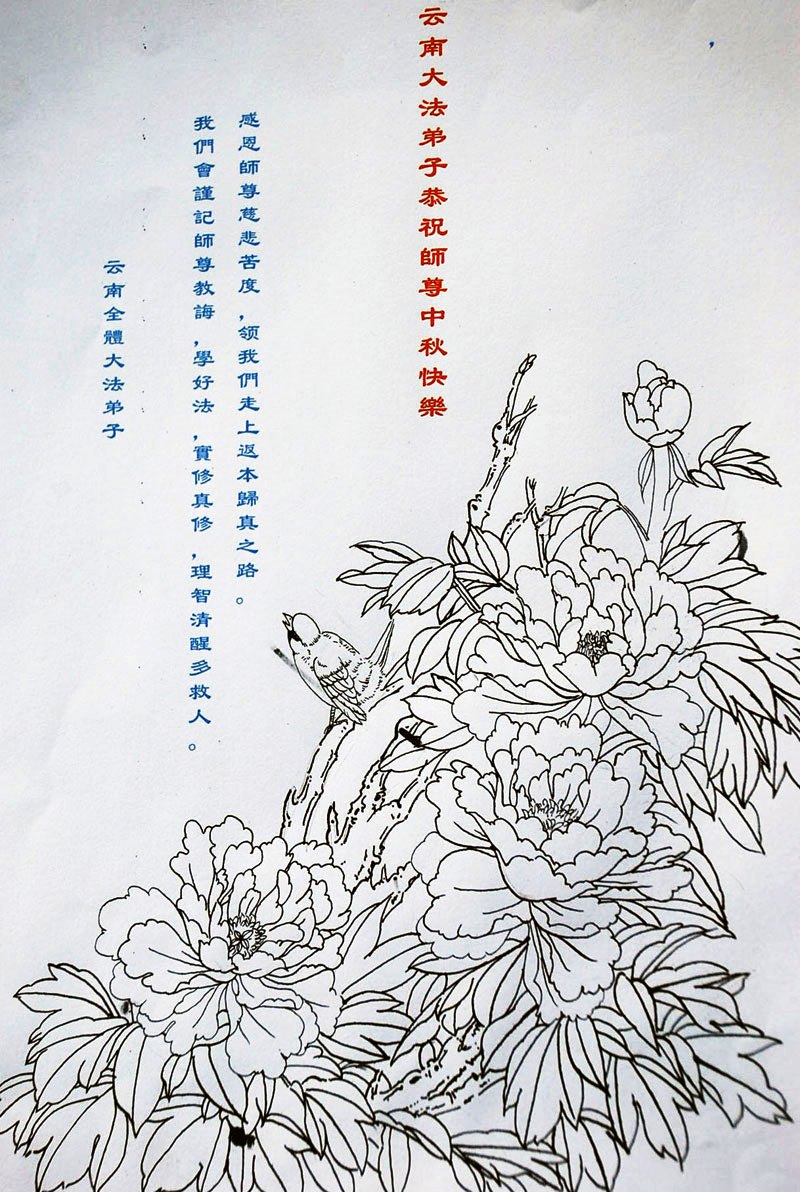 云南大法弟子恭祝師尊中秋快樂
感恩師尊慈悲苦度，领我們走上返本歸真之路。
我們會謹記師尊教誨，學好法，實修真修，理智清醒多救人。
云南全體大法弟子